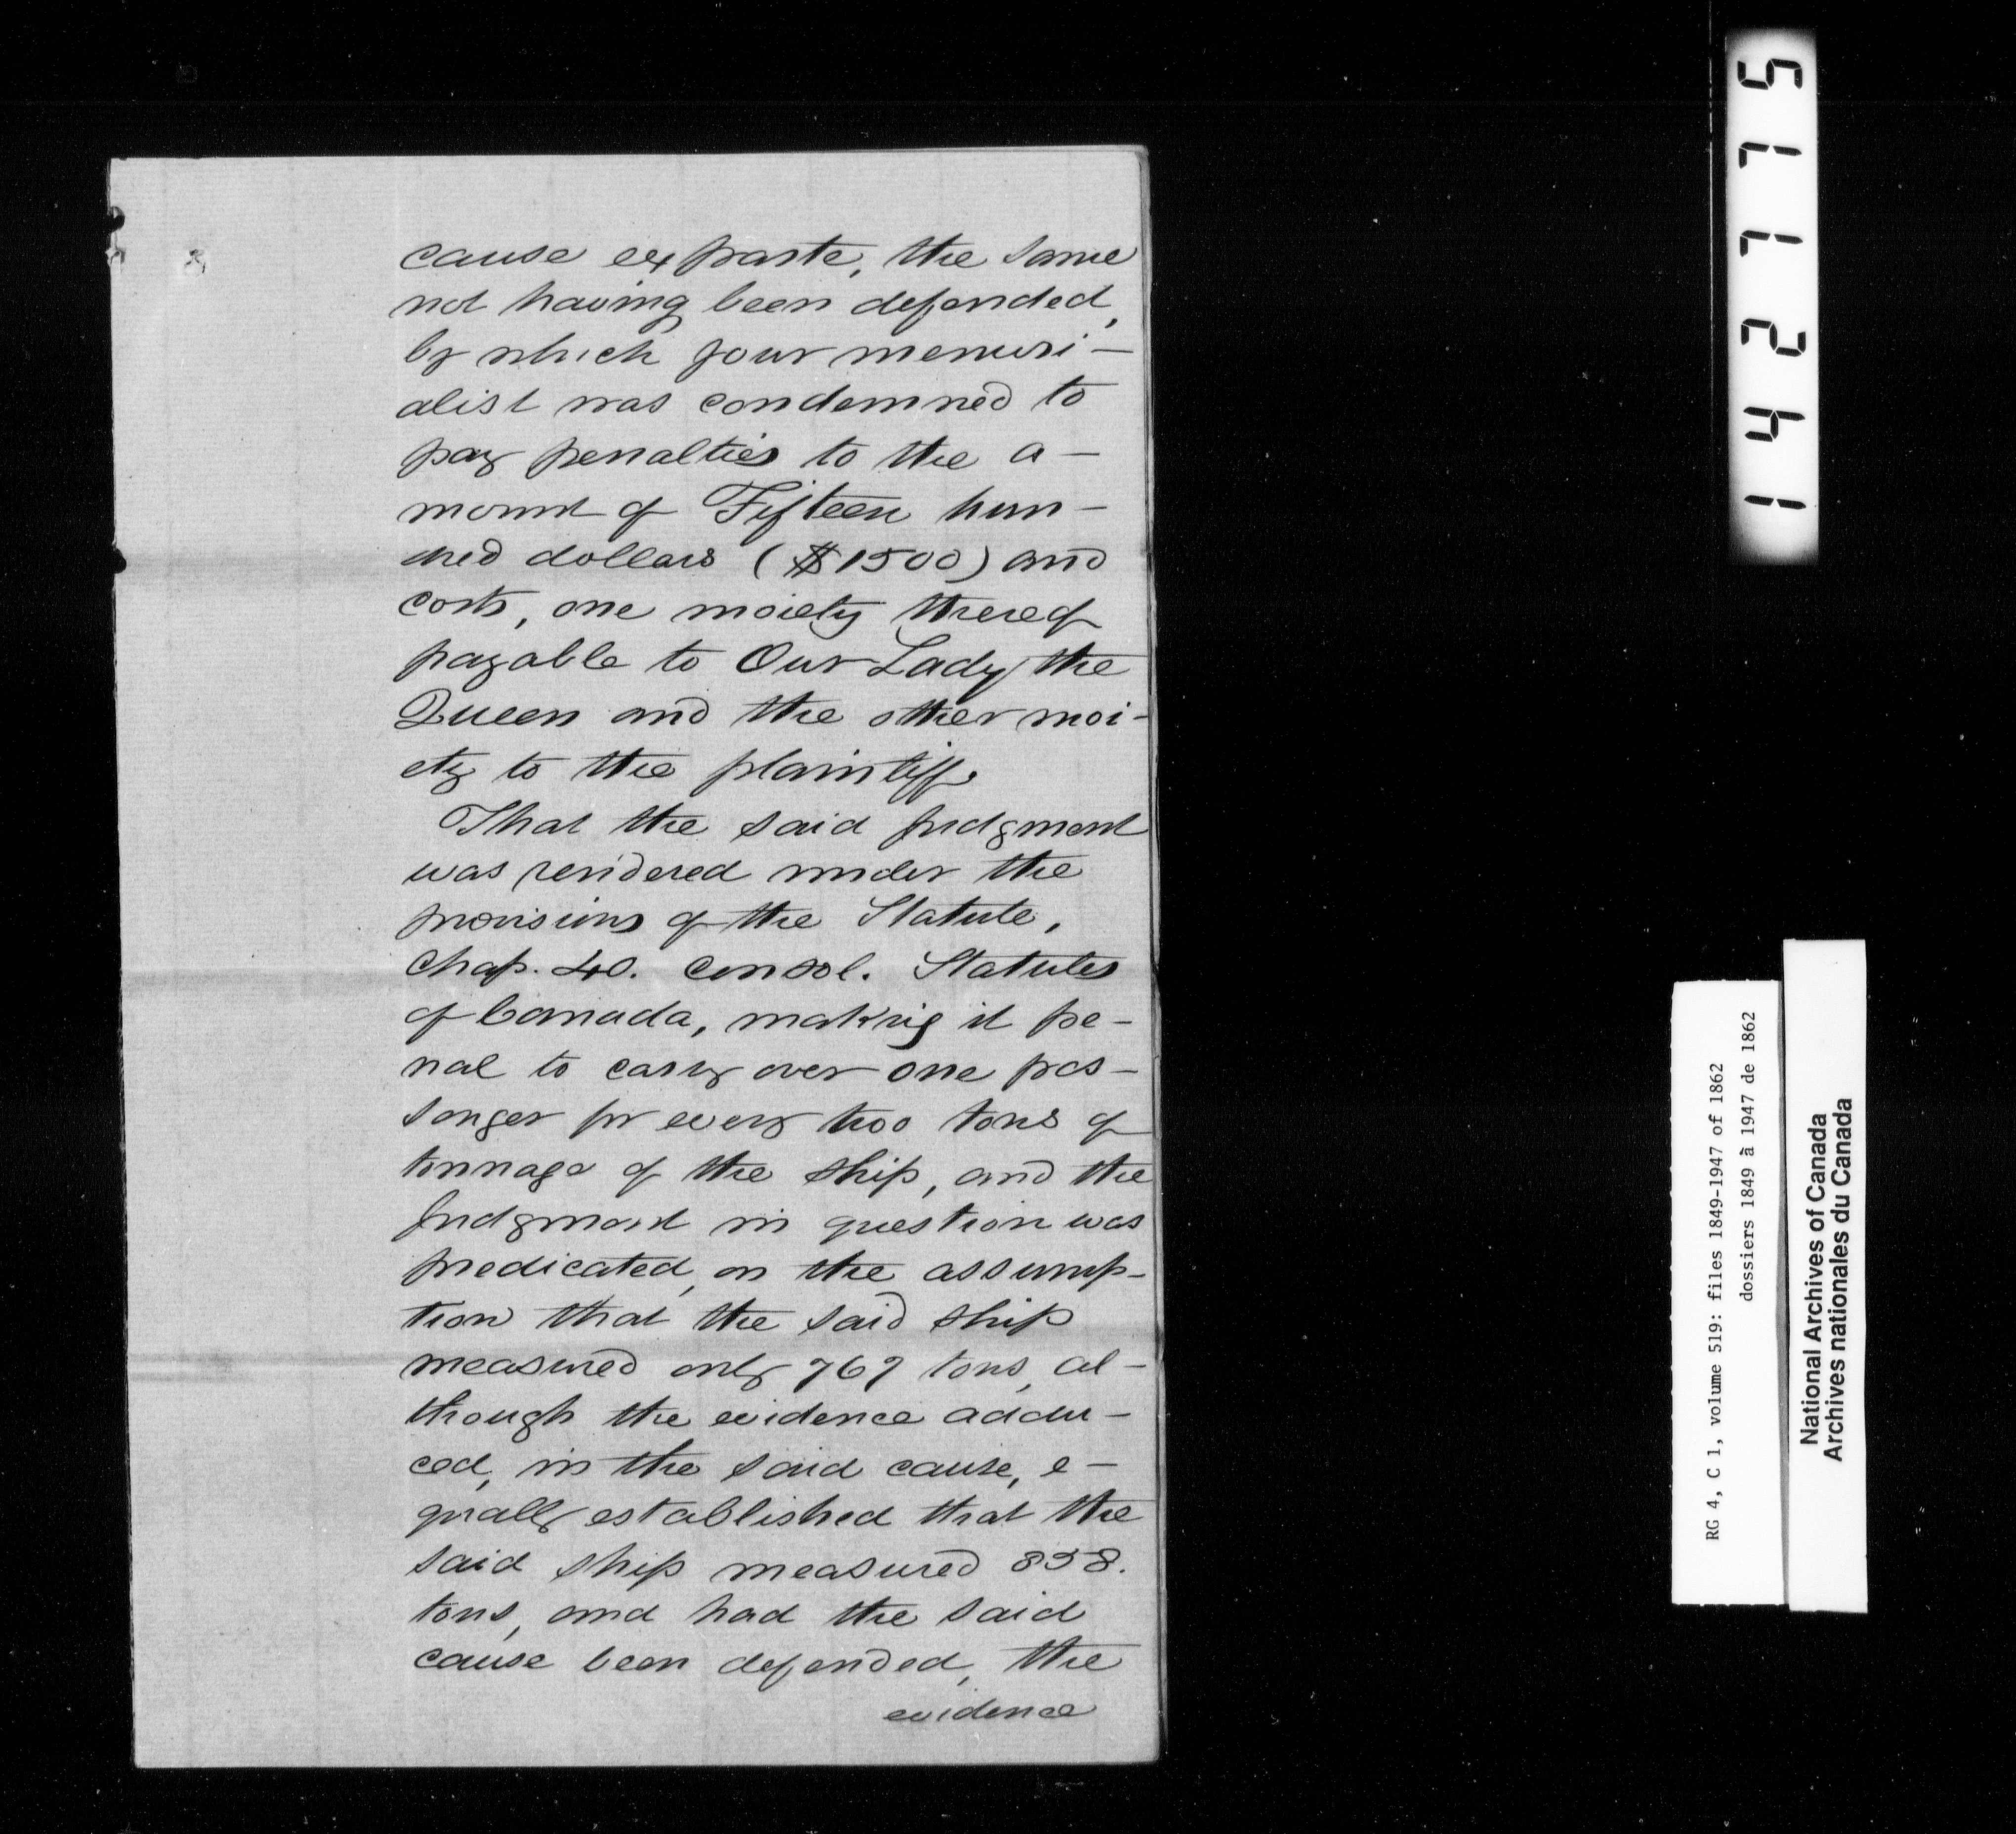 cause ex parte, the same
not having been defended,
by which your memori-
alist was condemned to
pay penalties to the a-
mount of Fifteen hun-
dred dollars ($1500) and
costs, one moiety thereof
payable to Our Lady the
Queen and the other moi-
ety to the plaintiff.
That the said judgment
was rendered under the
provisions of the Statute,
Chap. 40. Consol. Statutes
of Canada, making it pe-
nal to carry over one pas-
senger for every two tons of
tonnage of the ship, and the
judgment in question was
predicated, on the assump-
tion that the said ship
measured only 769 tons, al-
though the evidence addu-
ced, in the said cause, e-
qually established that the
said ship measured 858.
tons, and had the said
cause been defended, the
evidence
142775
RG 4, C 1, volume 519: files 1849-1947 of 1862
dossiers 1849 à 1947 de 1862
National Archives of Canada
Archives nationales du Canada